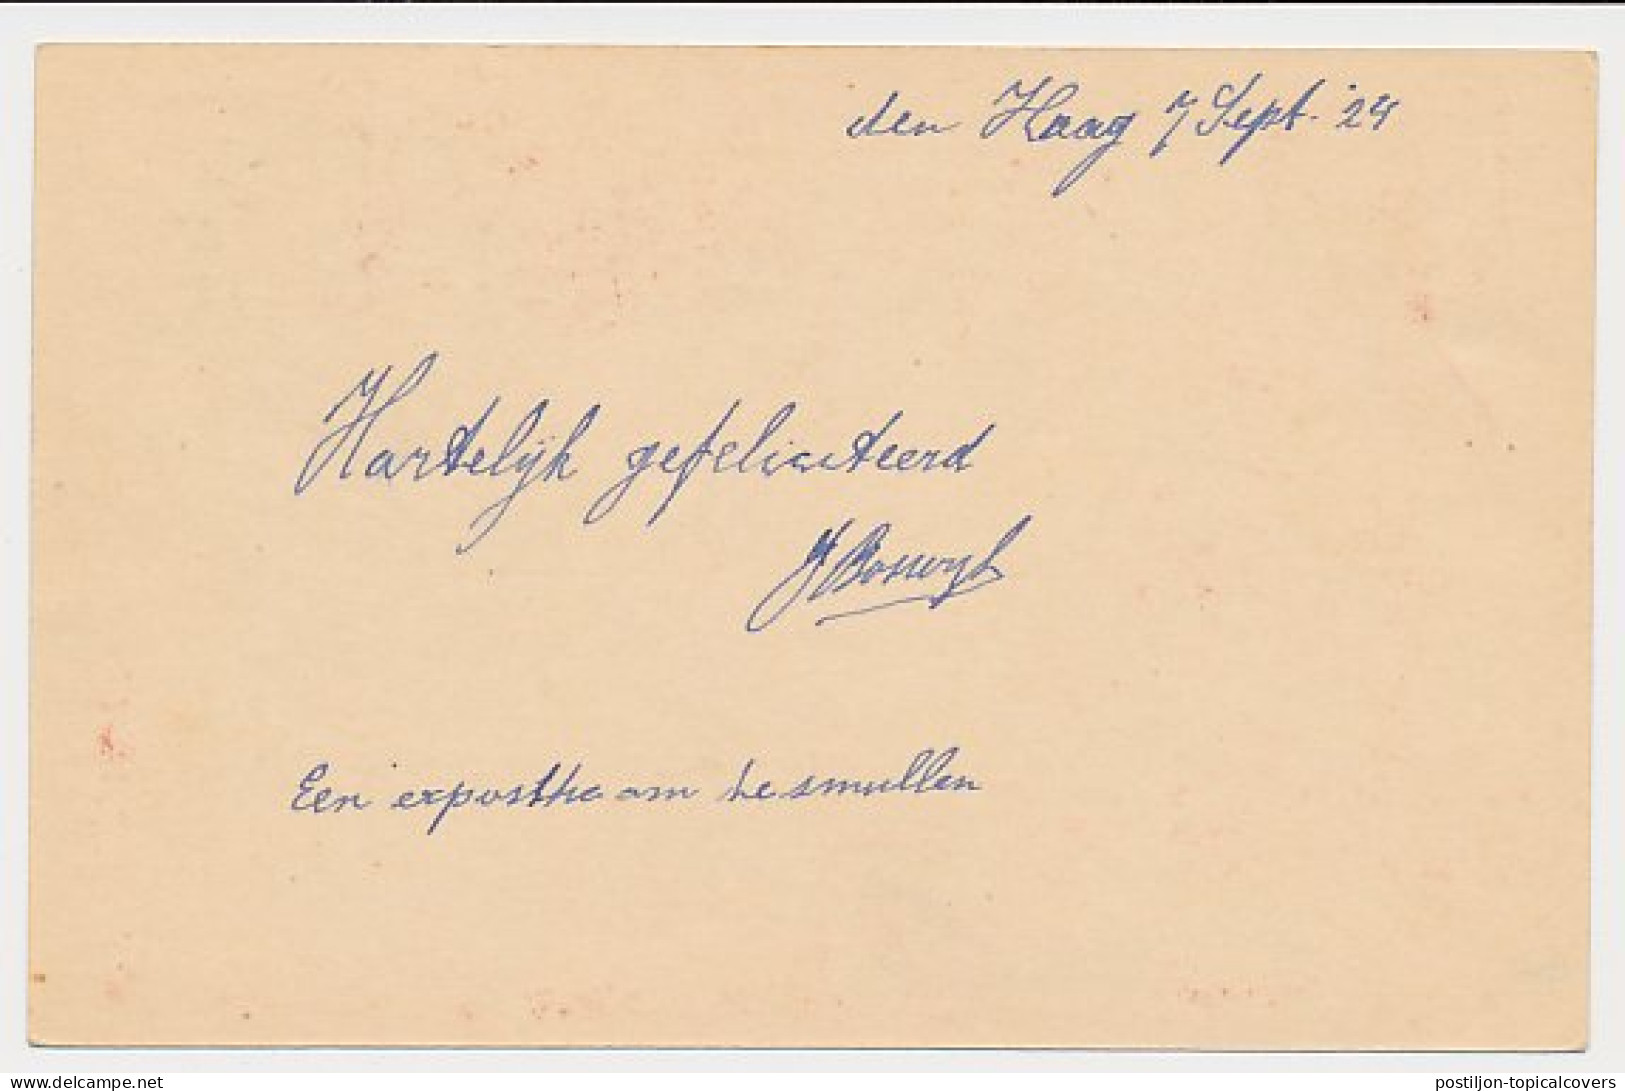 den Haag 7 Sept. '24
Hartelijk gefeliciteerd
Een expostkraam te smullen
www.delcampe.net
postiljon-topicalcovers